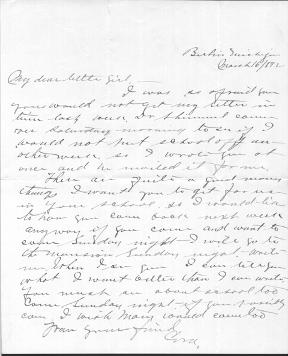 Berlin Michigan
March 16/1892
My dear little Girl
I was so afraid you
you would not get my letter in
time last week. Dr. came
over Saturday morning to see if I
would not put school off an-
other week, so I wrote you at
once and he mailed it for me
There are quite a good many
things I want you to get for us
in your school, so I would like
to have you come back next week
anyway if you come and want to
come Sunday night I will go to
the mansion Sunday night, write
me when I see you I can tell you
what I want better than I can write
You must see about school too
Come Sunday night if you possibly
can. I wish Mary would come too
From your friend